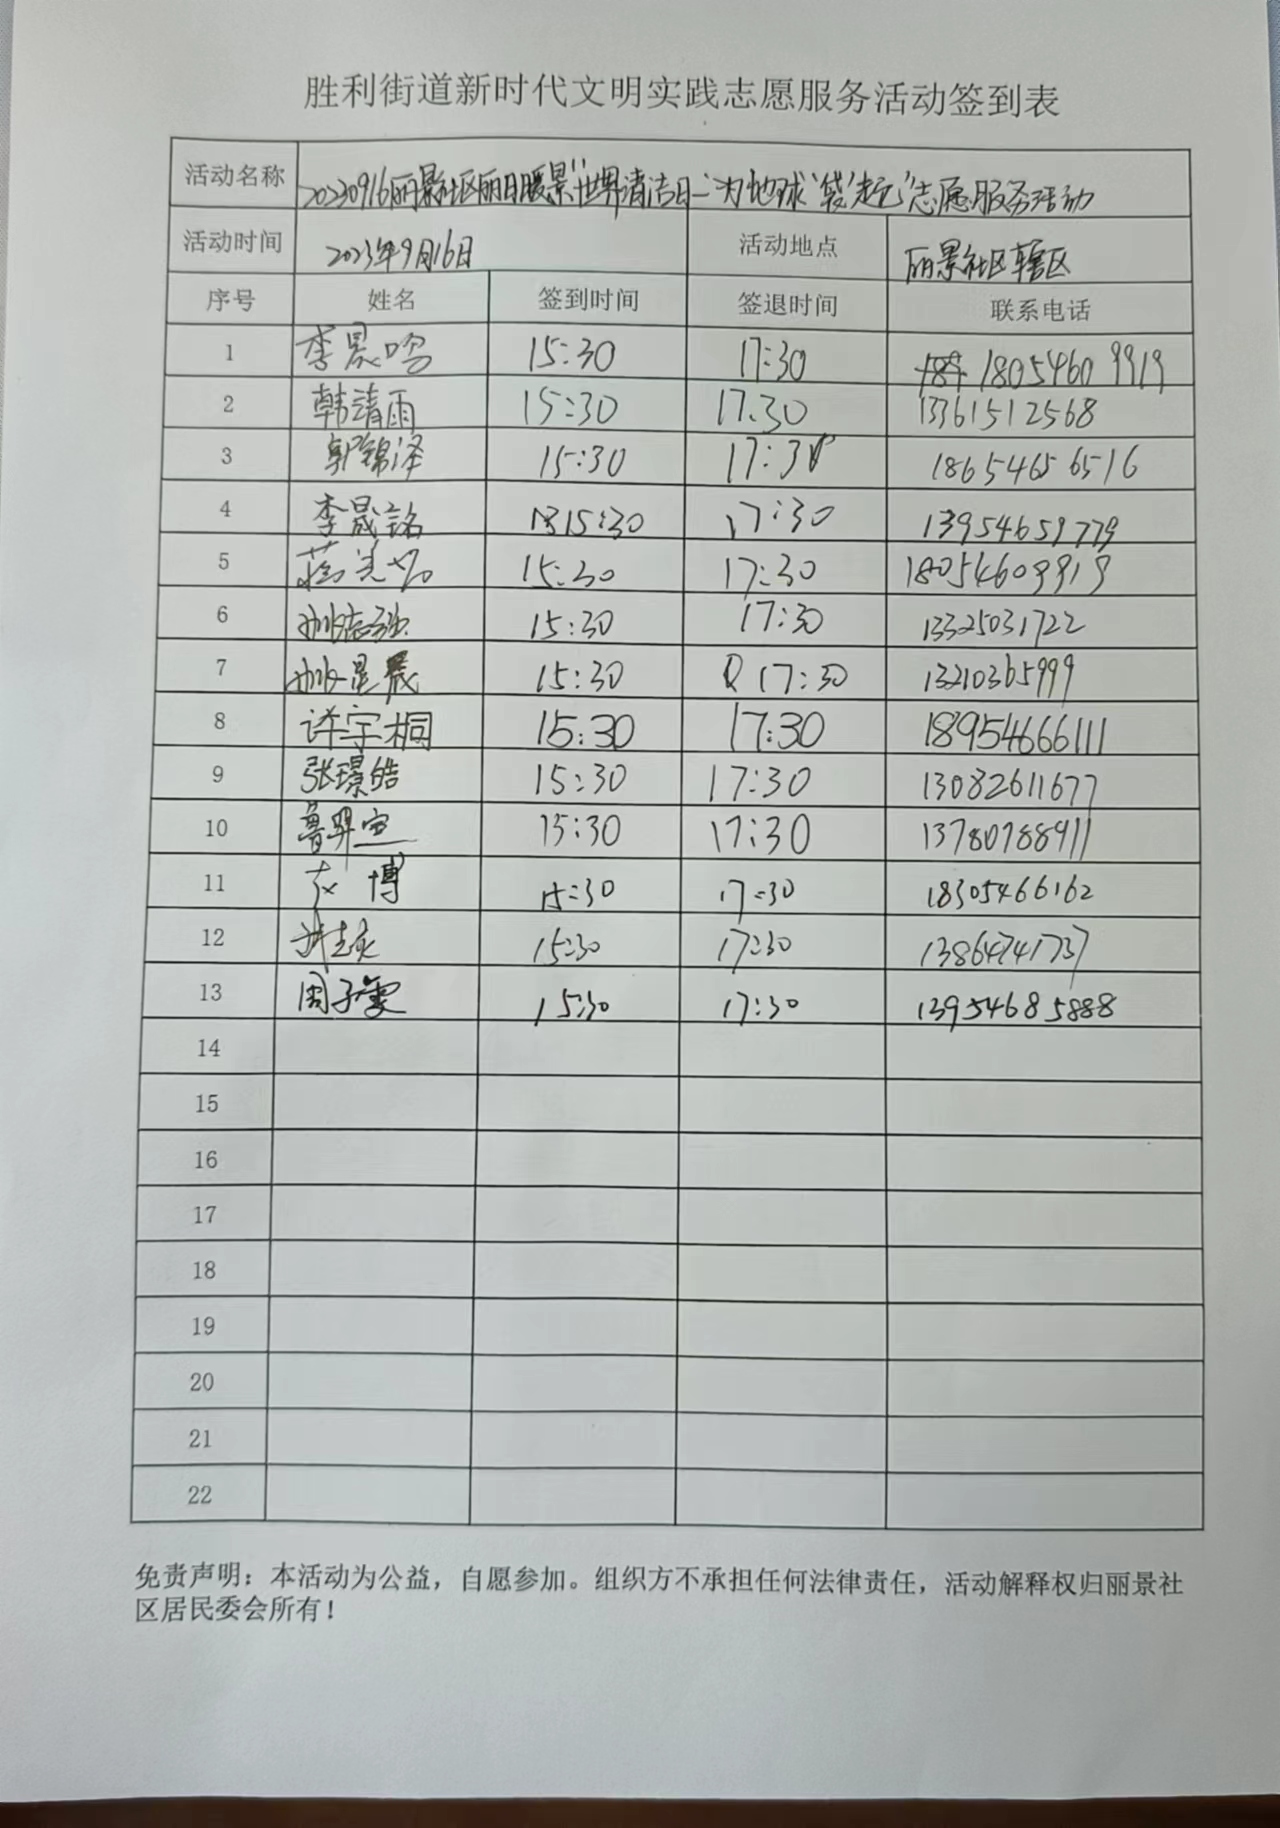 胜利街道新时代文明实践志愿服务活动签到表
活动名称 20230916丽景社区丽日暖景"世界清洁日-为地球"袋"走"志愿服务活动
活动时间 2023年9月16日 活动地点 丽景社区辖区
序号 姓名 签到时间 签退时间 联系电话
1 李晟鸣 15:30 17:30 18054609919
2 韩清雨 15:30 17:30 13361512568
3 郭锦泽 15:30 17:30 18654656516
4 李晟铭 15:30 17:30 13954659779
5 15:30 17:30 18054609919
6 15:30 17:30 13325031722
7 15:30 17:30 13210365999
8 许宇桐 15:30 17:30 18954666111
9 张璟皓 15:30 17:30 13082611677
10 15:30 17:30 13780788911
11 博 15:30 17:30 18305466162
12 15:30 17:30 13864741737
13 周子雯 15:30 17:30 13954685888
14
15
16
17
18
19
20
21
22
免责声明：本活动为公益，自愿参加。组织方不承担任何法律责任，活动解释权归丽景社
区居民委会所有！